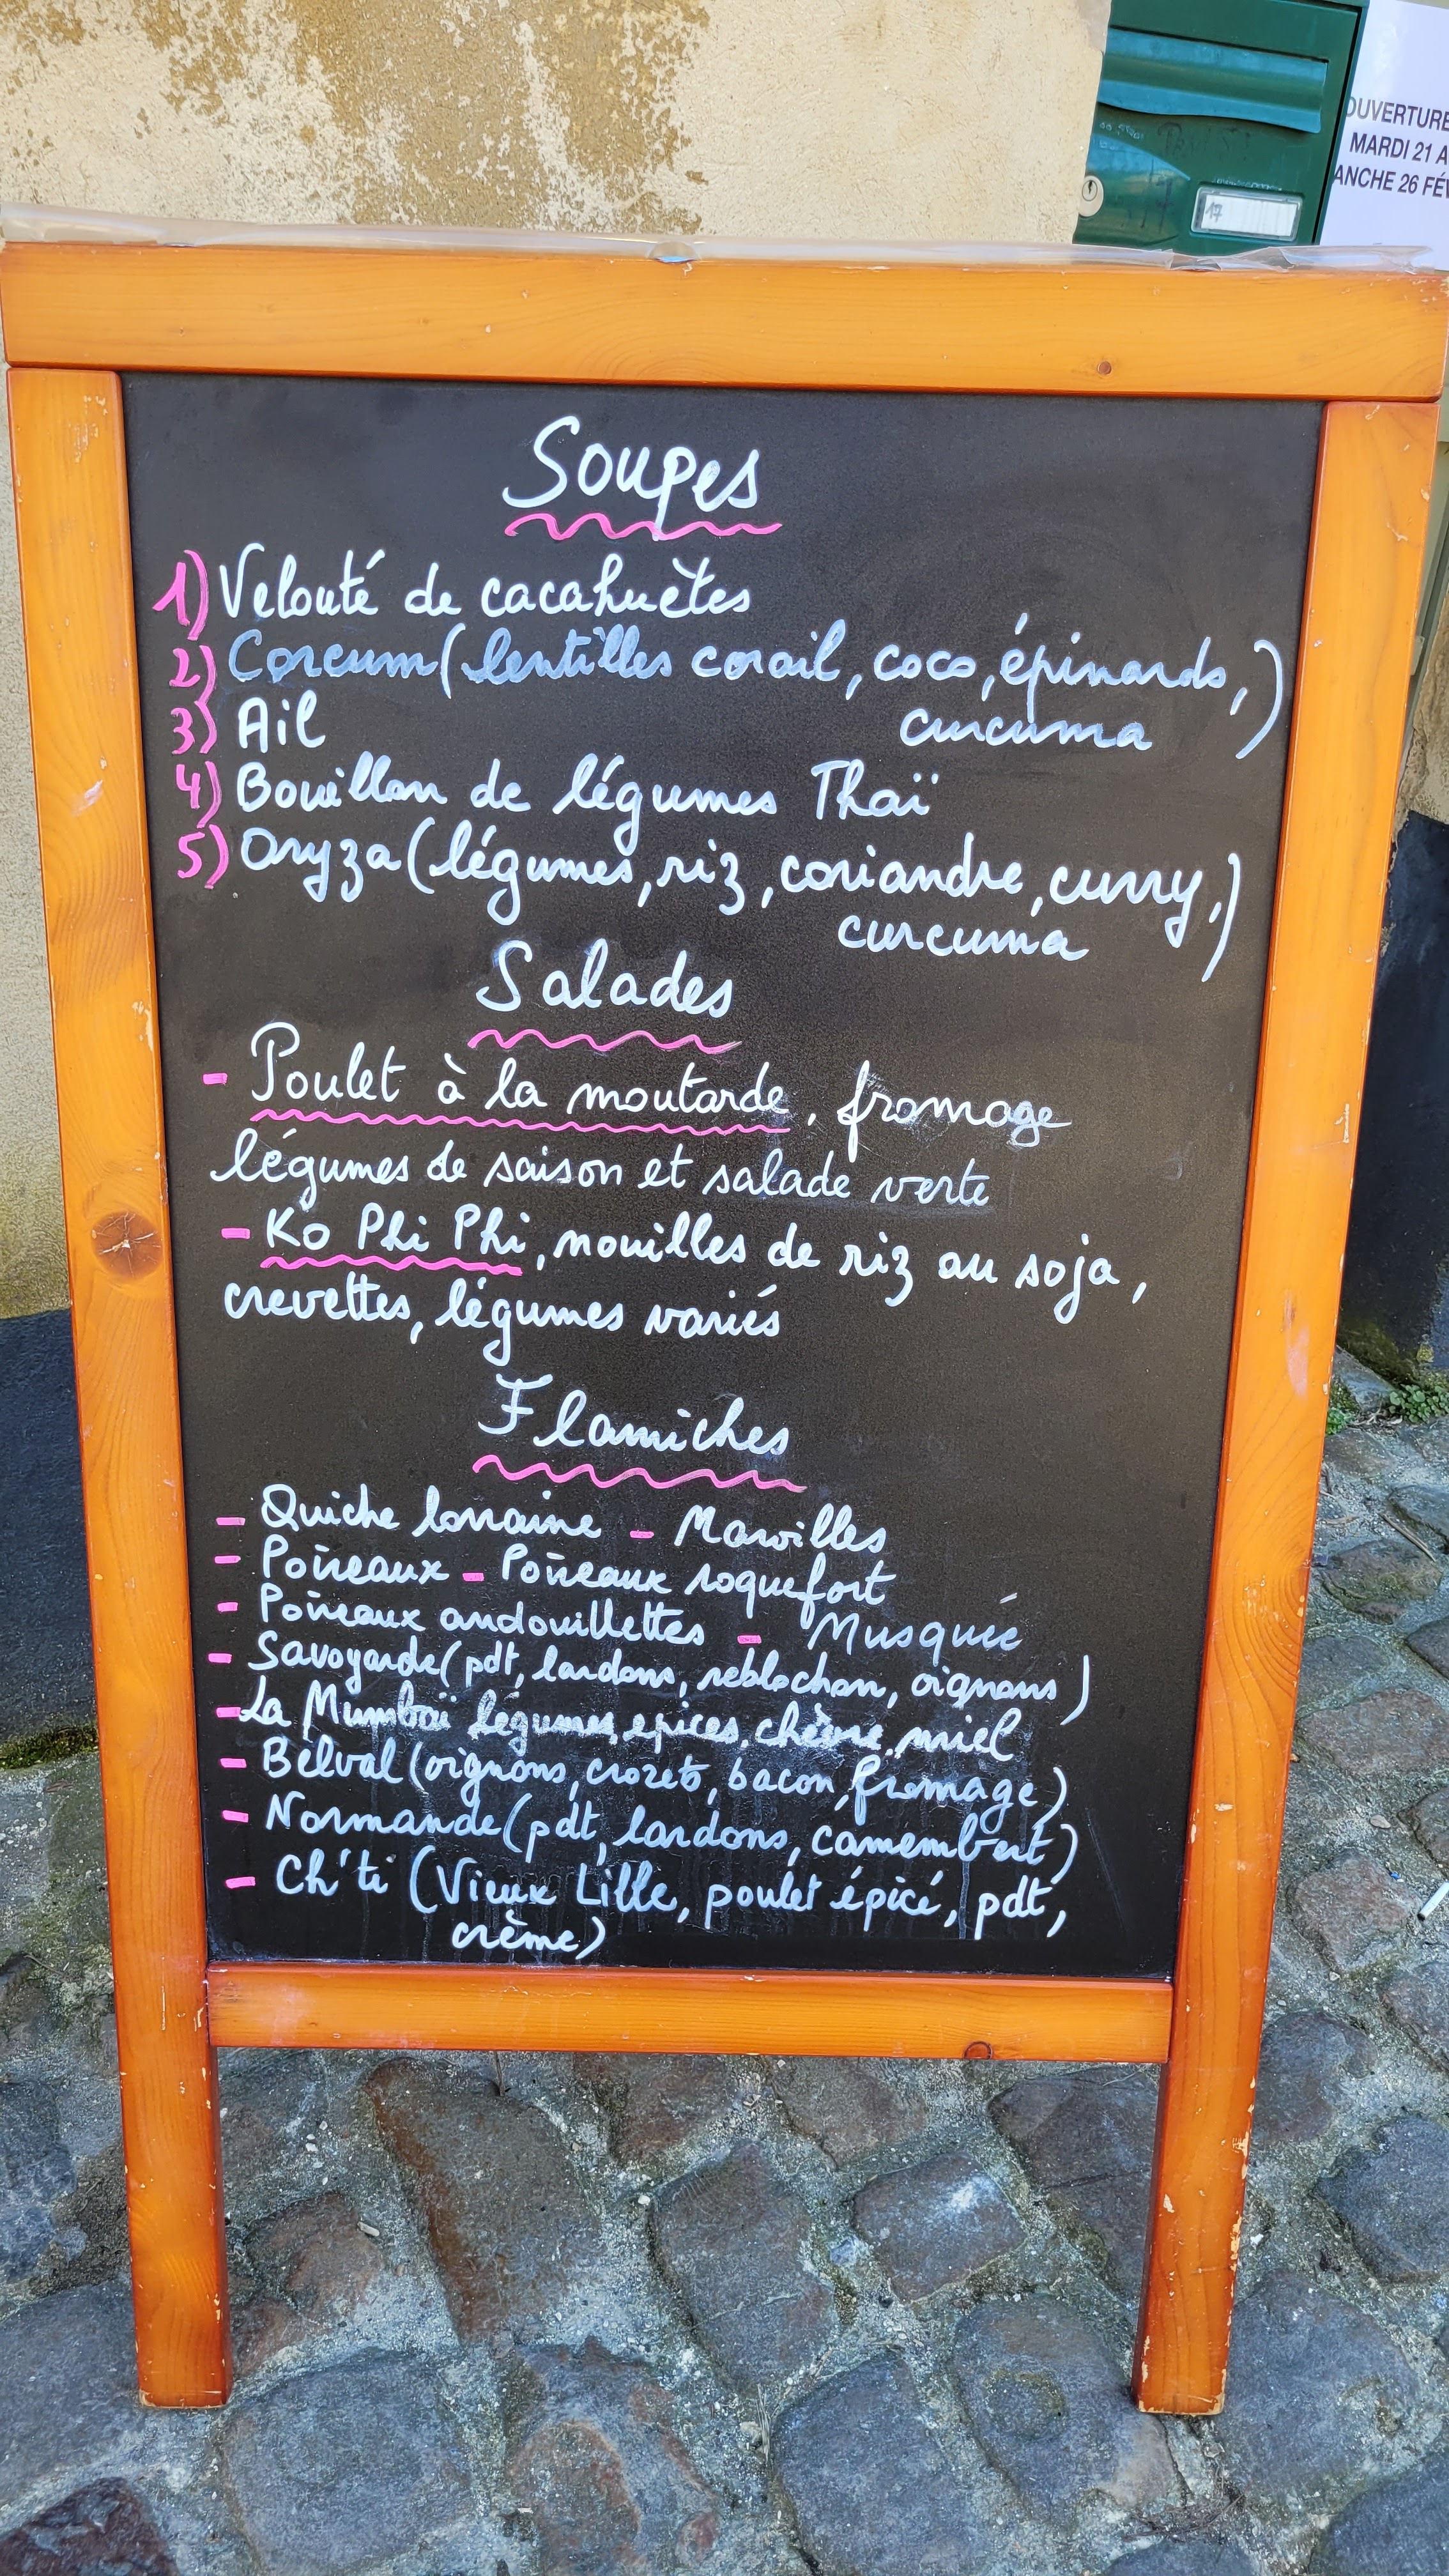 OUVERTURE
MARDI 21 A
ANCHE 26 FÉV
17
Soupes
1) Velouté de cacahuètes
2) Corcum (lentilles corail, coco, épinards,
curcuma)
3) Ail
4) Bouillon de légumes Thaï
5) Oryza (légumes, riz, coriandre, curry,
curcuma)
Salades
- Poulet à la moutarde, fromage
légumes de saison et salade verte
- Ko Phi Phi, nouilles de riz au soja,
crevettes, légumes variés
Flamiches
- Quiche lorraine - Maroilles
- Poireaux - Poireaux roquefort
- Poireaux andouillettes - Musquée
- Savoyarde (pdt, lardons, reblochon, oignons)
- La Mumbaï légumes, epices, chèvre, miel
- Belval (oignons, crozets, bacon, fromage)
- Normande (pdt, lardons, camembert)
- Ch'ti (Vieux Lille, poulet épicé, pdt,
crème)